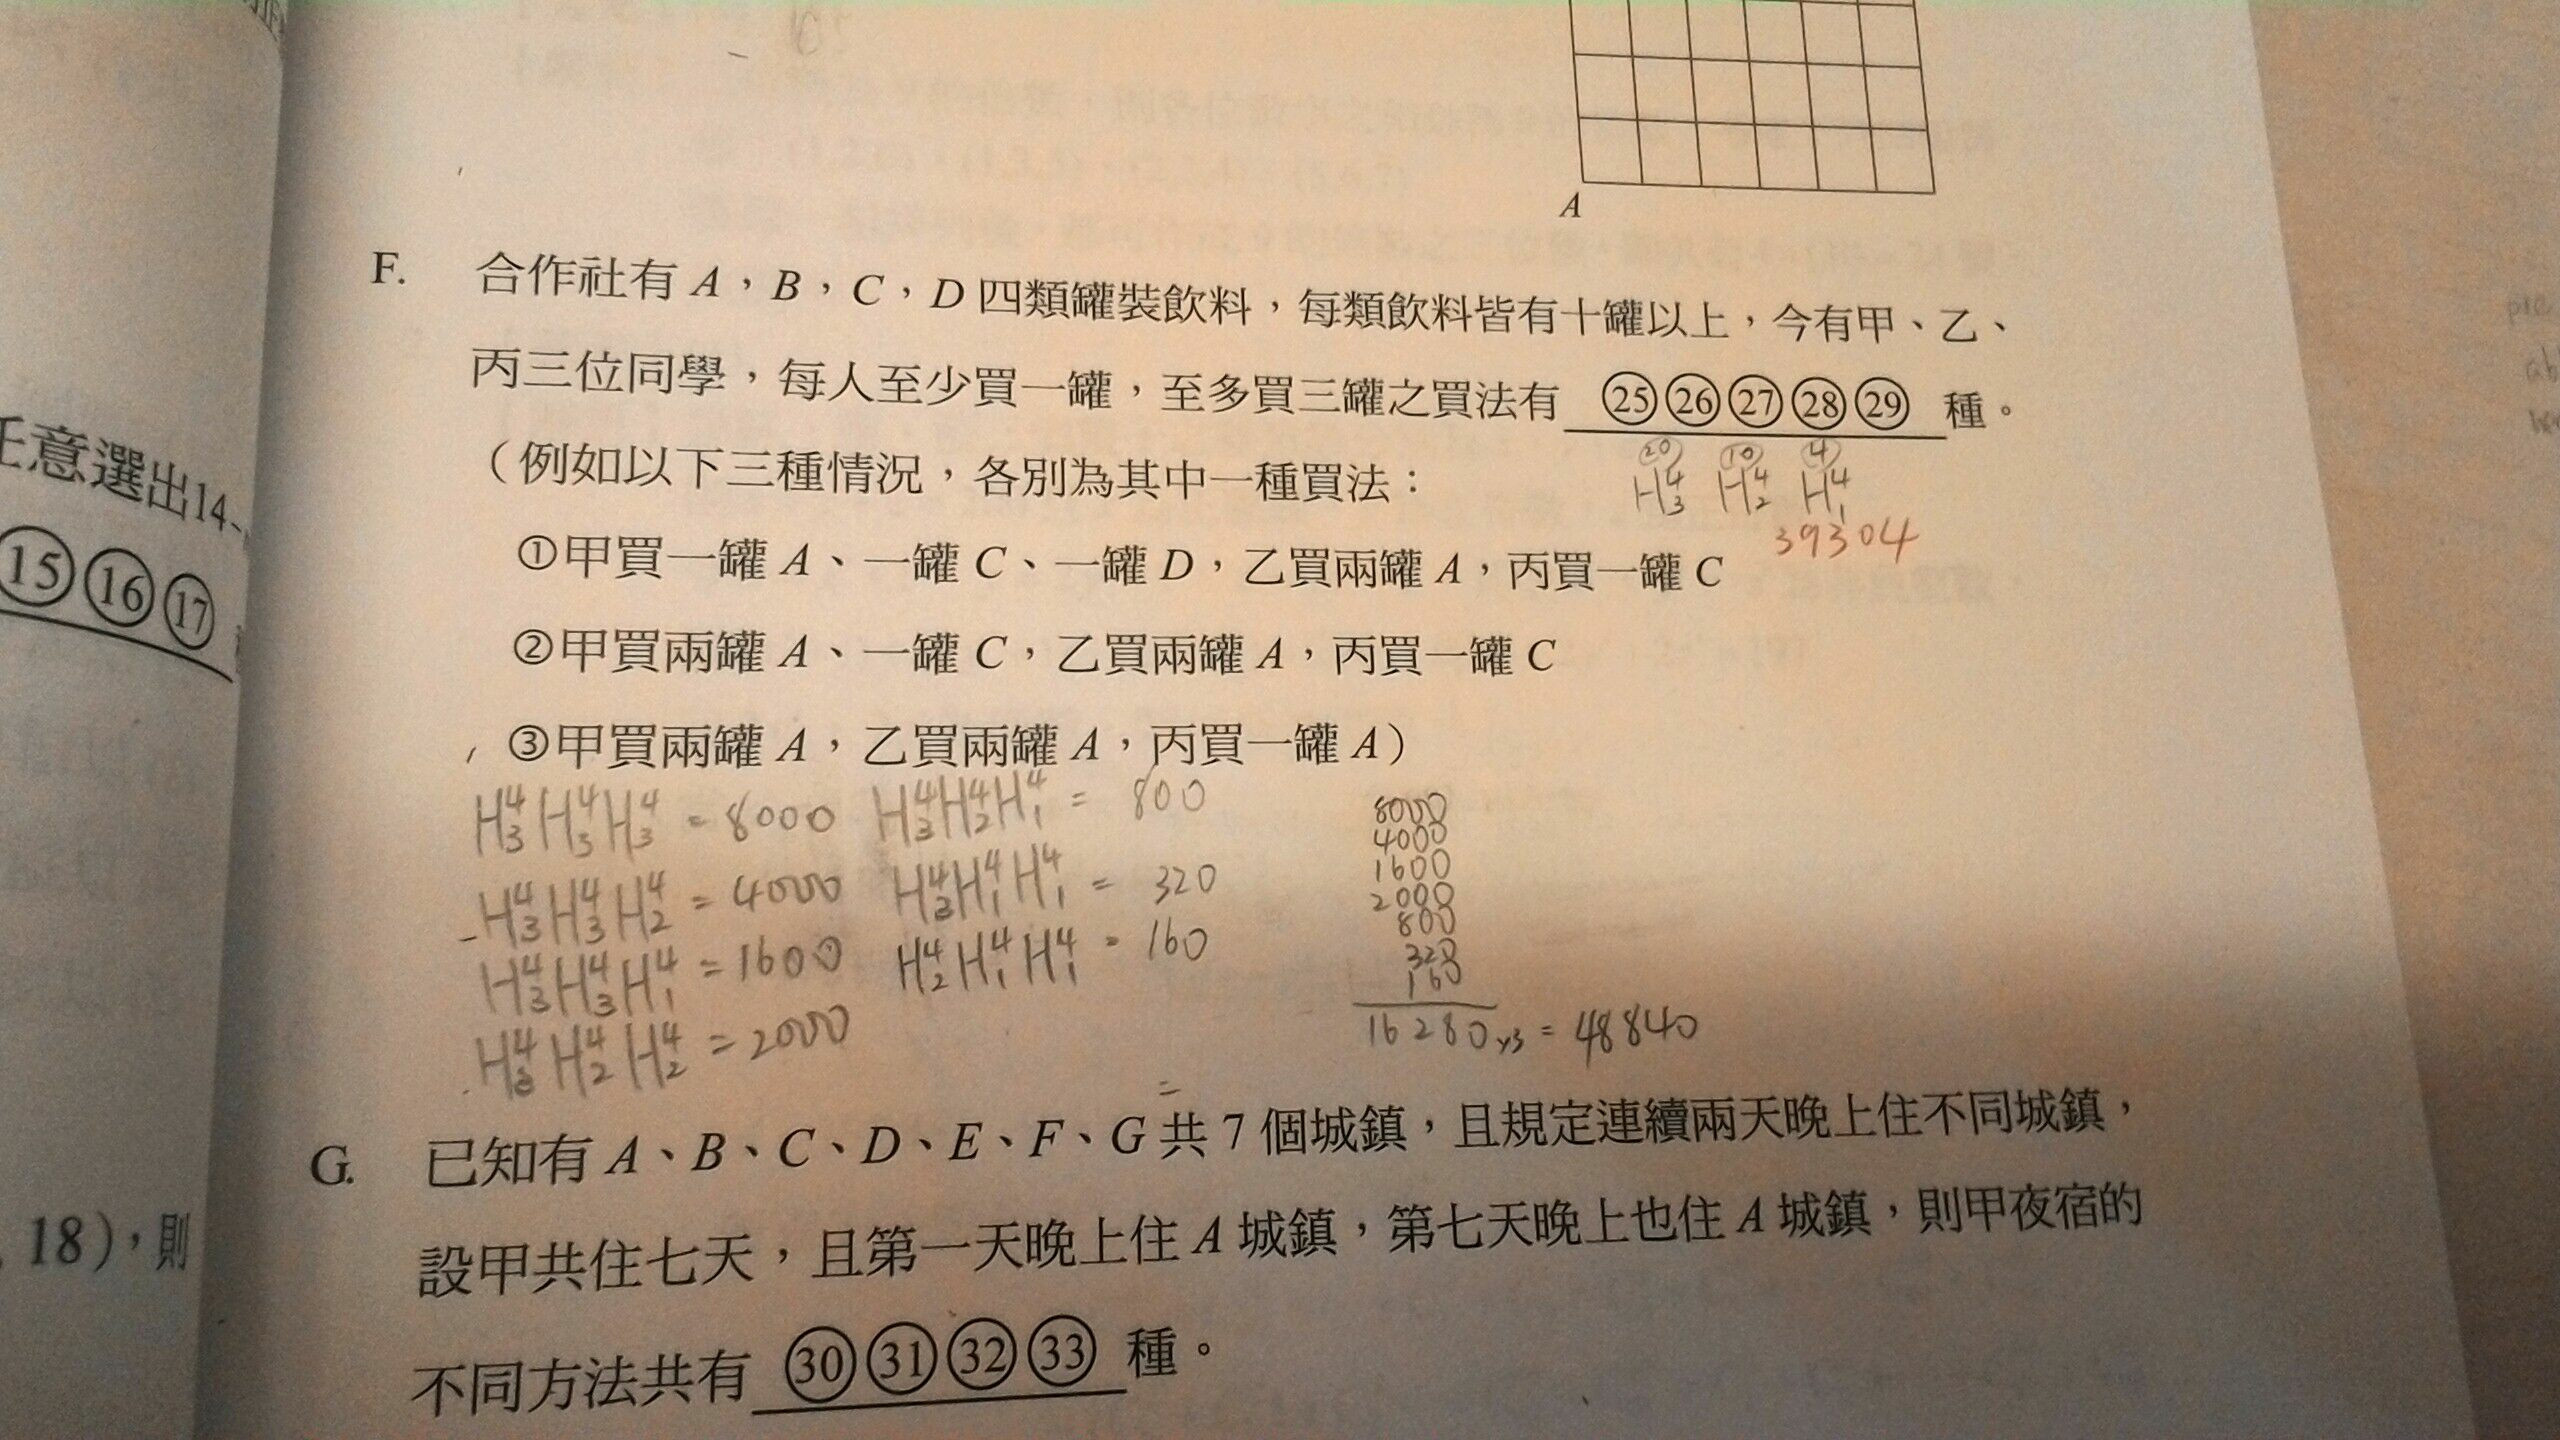 A
F. 合作社有 A，B，C，D 四類罐裝飲料，每類飲料皆有十罐以上，今有甲、乙、
丙三位同學，每人至少買一罐，至多買三罐之買法有 ㉕㉖㉗㉘㉙ 種。
（例如以下三種情況，各別為其中一種買法：
⑳ ⑩ ④
H⁴₃ H⁴₂ H⁴₁
39304
①甲買一罐 A、一罐 C、一罐 D，乙買兩罐 A，丙買一罐 C
②甲買兩罐 A、一罐 C，乙買兩罐 A，丙買一罐 C
③甲買兩罐 A，乙買兩罐 A，丙買一罐 A）
H⁴₃H⁴₃H⁴₃ = 8000
H⁴₃H⁴₃H⁴₂ = 4000
H⁴₃H⁴₃H⁴₁ = 1600
H⁴₃H⁴₂H⁴₂ = 2000
H⁴₃H⁴₂H⁴₁ = 800
H⁴₃H⁴₁H⁴₁ = 320
H⁴₂H⁴₁H⁴₁ = 160
8000
4000
1600
2000
800
320
160
16280×3 = 48840
G. 已知有 A、B、C、D、E、F、G 共 7 個城鎮，且規定連續兩天晚上住不同城鎮，
設甲共住七天，且第一天晚上住 A 城鎮，第七天晚上也住 A 城鎮，則甲夜宿的
不同方法共有 ㉚㉛㉜㉝ 種。
意選出14、
⑮⑯⑰
18)，則